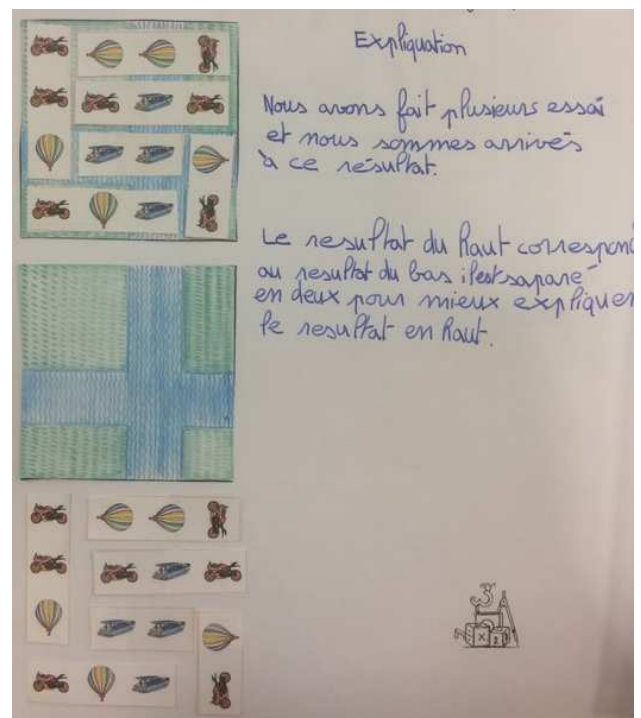 Expliquation
Nous avons fait plusieurs essai
et nous sommes arrivés
à ce résultat.
Le resultat du haut correspond
au resultat du bas il est sapare
en deux pour mieux expliquer
le resultat en haut.